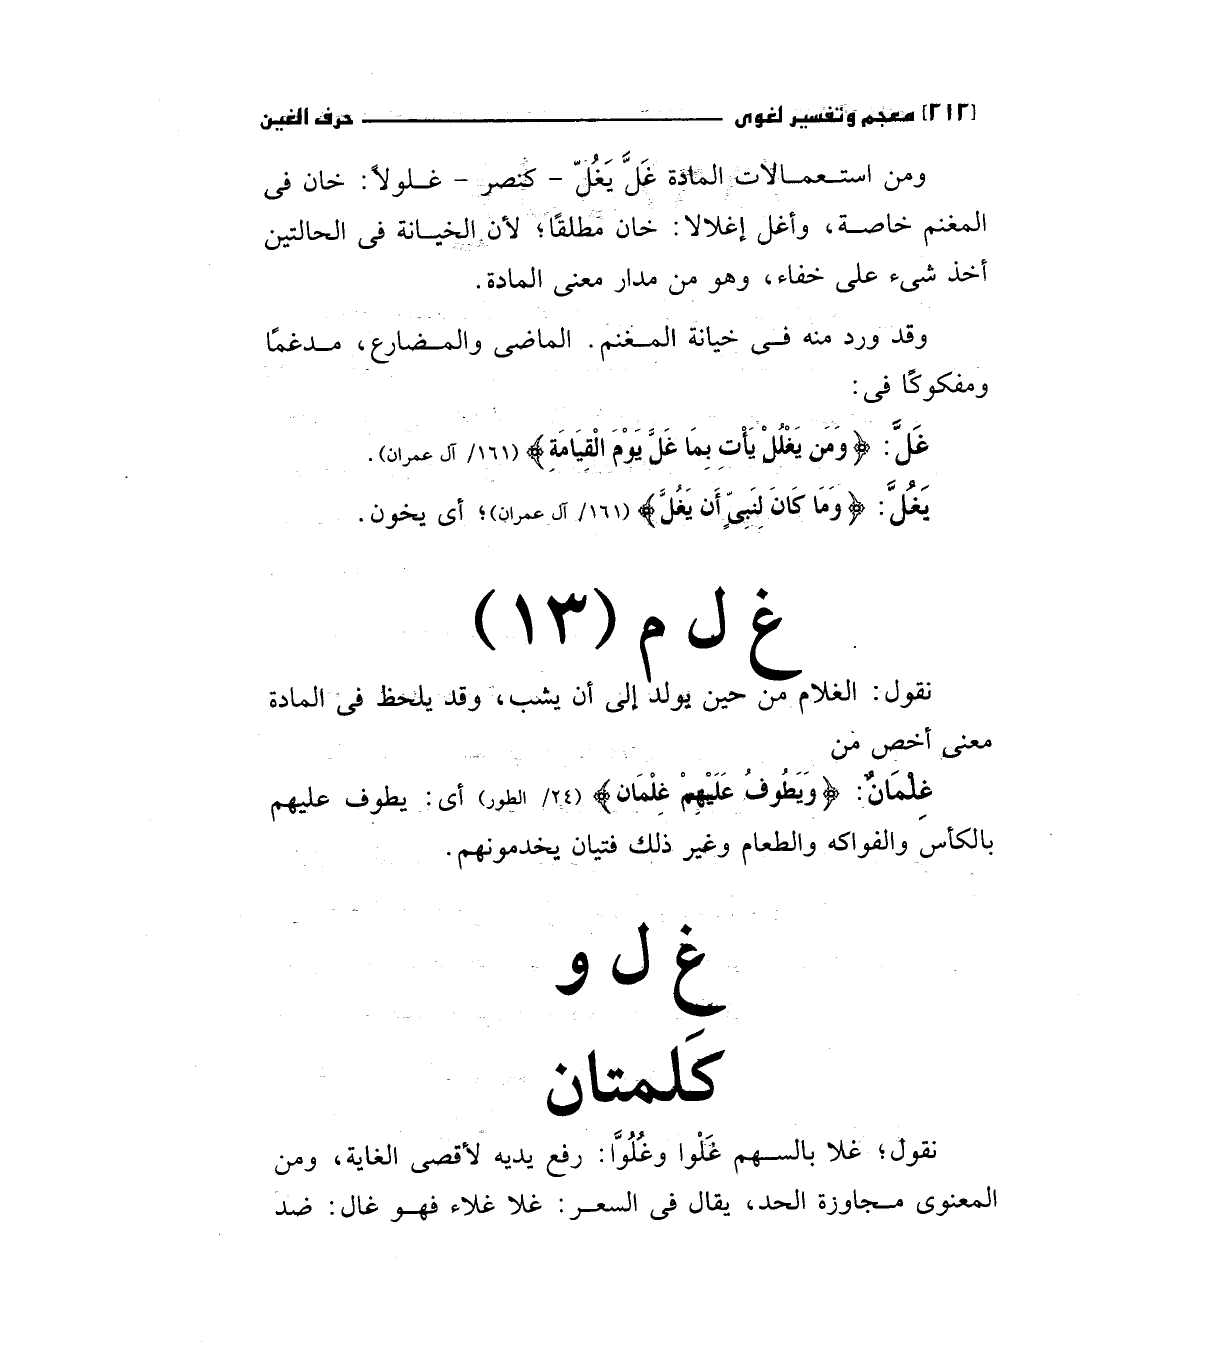 [٢١٢] معجم وتفسير لغوى حرف الغين
ومن استعمالات المادة غَلَّ يَغُلّ - كنصر - غلولاً: خان فى
المغنم خاصة، وأغل إغلالا: خان مطلقًا؛ لأن الخيانة فى الحالتين
أخذ شىء على خفاء، وهو من مدار معنى المادة.
وقد ورد منه فى خيانة المغنم. الماضى والمضارع، مدغمًا
ومفكوكًا فى:
غَلَّ: ﴿وَمَن يَغْلُلْ يَأْتِ بِمَا غَلَّ يَوْمَ الْقِيَامَةِ﴾ (١٦١/ آل عمران).
يَغُلَّ: ﴿وَمَا كَانَ لِنَبِىٍّ أَن يَغُلَّ﴾ (١٦١/ آل عمران)؛ أى يخون.
غ ل م (١٣)
نقول: الغلام من حين يولد إلى أن يشب، وقد يلحظ فى المادة
معنى أخص من
غِلْمَانٌ: ﴿وَيَطُوفُ عَلَيْهِمْ غِلْمَان﴾ (٢٤/ الطور) أى: يطوف عليهم
بالكأس والفواكه والطعام وغير ذلك فتيان يخدمونهم.
غ ل و
كَلمتان
نقول؛ غلا بالسهم غَلْوا وغُلُوًّا: رفع يديه لأقصى الغاية، ومن
المعنوى مجاوزة الحد، يقال فى السعر: غلا غلاء فهو غال: ضد